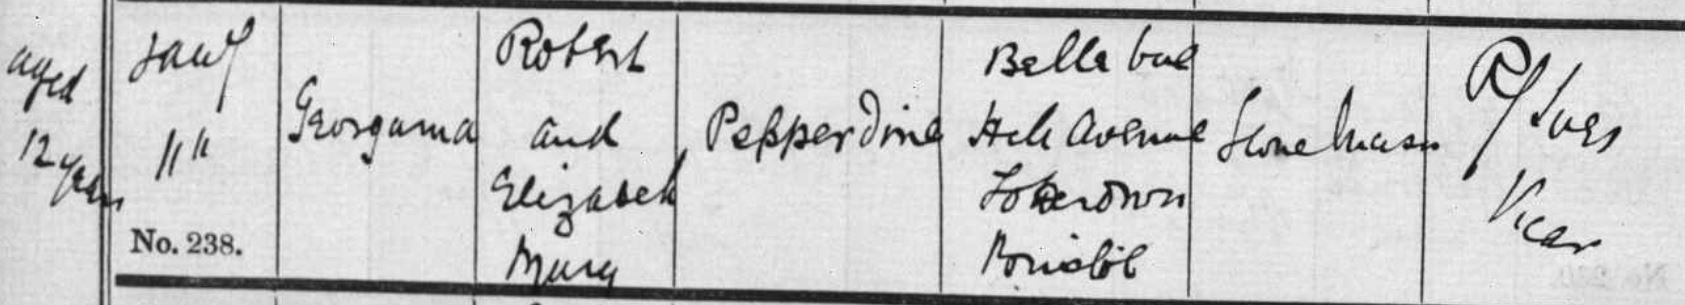 aged
12 years
Jany
11th
No. 238.
Georgiana
Robert
and
Elizabeth
Mary
Pepperdine
Bella Vue
Hill Avenue
Totterdown
Bristol
Stone Mason
Ives
Vicar